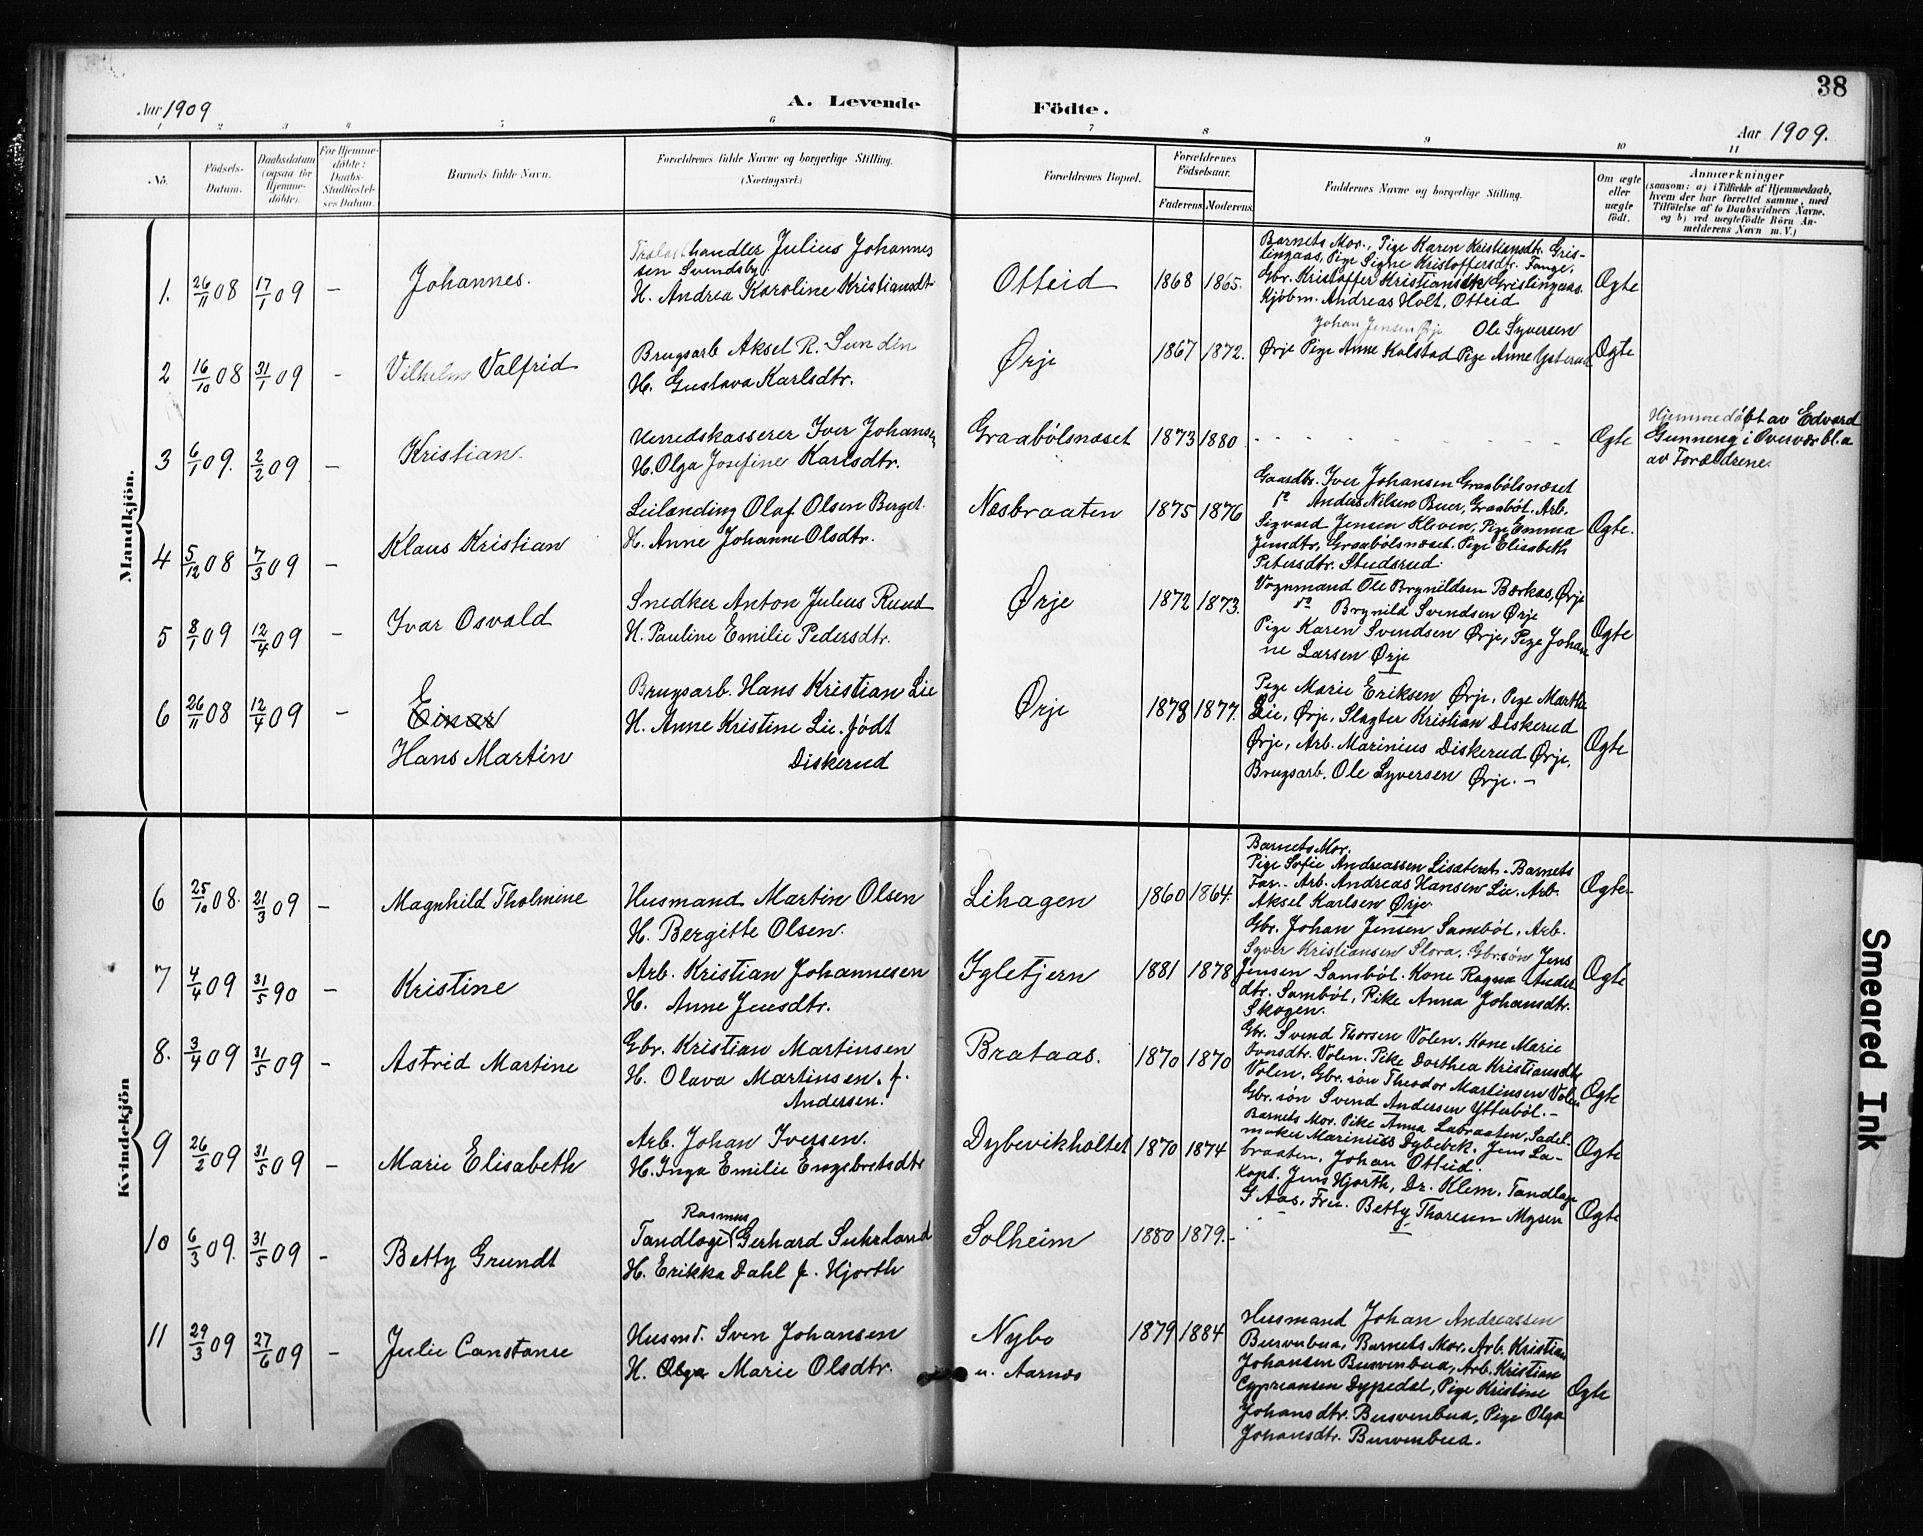 38
Aar 1909
A. Levende
Födte.
Aar 1909.
1 2 3 4 5 6 7 8 9 10 11
No.
Födsels-
Datum.
Daabsdatum
(ogsaa for
Hjemme-
döbte).
For Hjemme-
döbte:
Daabs-
Stadfæstel-
ses Datum.
Barnets fulde Navn.
Forældrenes fulde Navne og borgerlige Stilling.
(Næringsvei.)
Forældrenes Bopæl.
Forældrenes
Födselsaar.
Faderens.
Moderens.
Faddernes Navne og borgerlige Stilling.
Om ægte
eller
uægte
födt.
Anmærkninger
(saasom: a) i Tilfælde af Hjemmedaab,
hvem der har forrettet samme, med
Tilföielse af to Daabsvidners Navne,
og b) ved uægtefödte Börn An-
melderens Navn m. V.)
Mandkjön.
1. 26/11 08 17/1 09 –
Johannes.
Trælasthandler Julius Johannes
sen Svendsby.
H. Andrea Karoline Kristiansdt
Otteid
1868 1865.
Barnets Mor, Pige Karen Kristiansdtr. Gris-
lingaas, Pige Signe Kristoffersdtr. Tange,
Gbr. Kristoffer Kristiansen Grislingaas.
Kjöbm. Andreas Holt, Otteid
Ægte
2 16/10 08 31/1 09 -
Vilhelm Valfrid
Brugsarb Aksel R. Sundin
H. Gustava Karlsdtr.
Ørje
1867 1872.
Johan Jensen Ørje Ole Syversen
Ørje Pige Anne Kalstad Pige Anne Ysterud
Ægte
3 6/1 09. 2/2 09 –
Kristian.
Herredskasserer Iver Johansen
H. Olga Josefine Karlsdtr.
Graabölsnæset
1873 1880
Ægte
Hjemmedöbt av Edvard
Gunneng i Overvær bl.a
av Forældrene.
4 5/12 08 7/3 09 –
Klaus Kristian
Leilænding Olaf Olsen Berget.
H. Anne Johanne Olsdtr.
Næsbraaten
1875 1876
Gaardbr. Iver Johansen Graabölsnæset
do Anders Nilsen Buer, Graaböl. Arb.
Sigvard Jensen Kleven, Pige Emma
Jensdtr, Graabölsnæset. Pige Elisabeth
Petersdtr. Studsrud.
Ægte.
5 8/1 09 12/4 09 –
Ivar Osvald
Snedker Anton Julius Ruud
H. Pauline Emilie Pedersdtr.
Ørje
1872 1873.
Vognmand Ole Brynildsen Bærkas, Ørje
do Brynild Svendsen Ørje
Pige Karen Svendsen Ørje, Pige Johan
ne Larsen Ørje
Ægte
6 26/11 08 12/4 09 –
Einar
Hans Martin
Brugsarb. Hans Kristian Lie
H. Anne Kristine Lie. födt
Diskerud
Ørje
1878 1877.
Pige Marie Eriksen Ørje, Pige Marthe
Lie, Ørje, Slagter Kristian Diskerud
Ørje, Arb. Marinius Diskerud Ørje,
Brugsarb. Ole Syversen Ørje. –
Ægte
Kvindekjön
6 25/10 08. 21/3 09 –
Magnhild Tholmine
Husmand Martin Olsen
H. Bergitte Olsen.
Lihagen
1860 1864.
Barnets Mor,
Pige Sofie Andreassen Lisæteret. Barnets
Far. Arb. Andreas Hansen Lie. Arb.
Aksel Karlsen Ørje
Ægte
7 4/4 09 31/5 90 –
Kristine
Arb. Kristian Johannesen
H. Anne Jensdtr.
Igletjern
1881 1878
Gbr. Johan Jensen Samböl, Arb.
Syver Kristiansen Slora, Gbr.sön Jens
Jensen Samböl. Kone Ragna Anders
dtr. Samböl, Pike Anna Johansdtr.
Skogen.
Ægte
8. 3/4 09 31/5 09 –
Astrid Martine
Gbr. Kristian Martinsen
H. Olava Martinsen. f.
Andersen.
Brataas.
1870 1870
Gbr. Svend Thorsen Volen. Kone Marie
Volen. Pike Dorthea Kristiansdtr
Volen, Gbr. sön Theodor Martinsen Volen
Gbr. sön Svend Andersen Ytterböl. –
Ægte
9 26/2 09 31/5 09 –
Marie Elisabeth
Arb. Johan Iversen.
H. Inga Emilie Engebretsdtr
Dybevikholtet
1870 1874
Barnets Mor. Pike Anna Labraaten, Sadel-
maker Marinius Dybebek, Jens La-
braaten, Johan Otteid.
Ægte
10 6/3 09. 31/5 09 –
Betty Grundt
Rasmus
Tandlæge Gerhard Suhrland
H. Erikka Dahl f. Hjorth
Solheim
1880 1879.–
Kapt. Jens Hjorth, Dr. Klem, Tandlæge
G Aas, Fru. Betty Thoresen Mysen
Ægte
11 29/3 09 27/6 09 –
Julie Constanse
Husmd. Sven Johansen
H. Olga Marie Olsdtr.
Nybo
u. Aarnæs
1879 1884
Husmand Johan Andreassen
Busvenbua, Barnets Mor, Arb. Kristian
Johansen Busvenbua, Arb. Kristian
Cypreansen Dypedal, Pige Kristine
Johansdtr. Busvenbua, Pige Olga
Johansdtr. Busvenbua.
Ægte
Smeared Ink